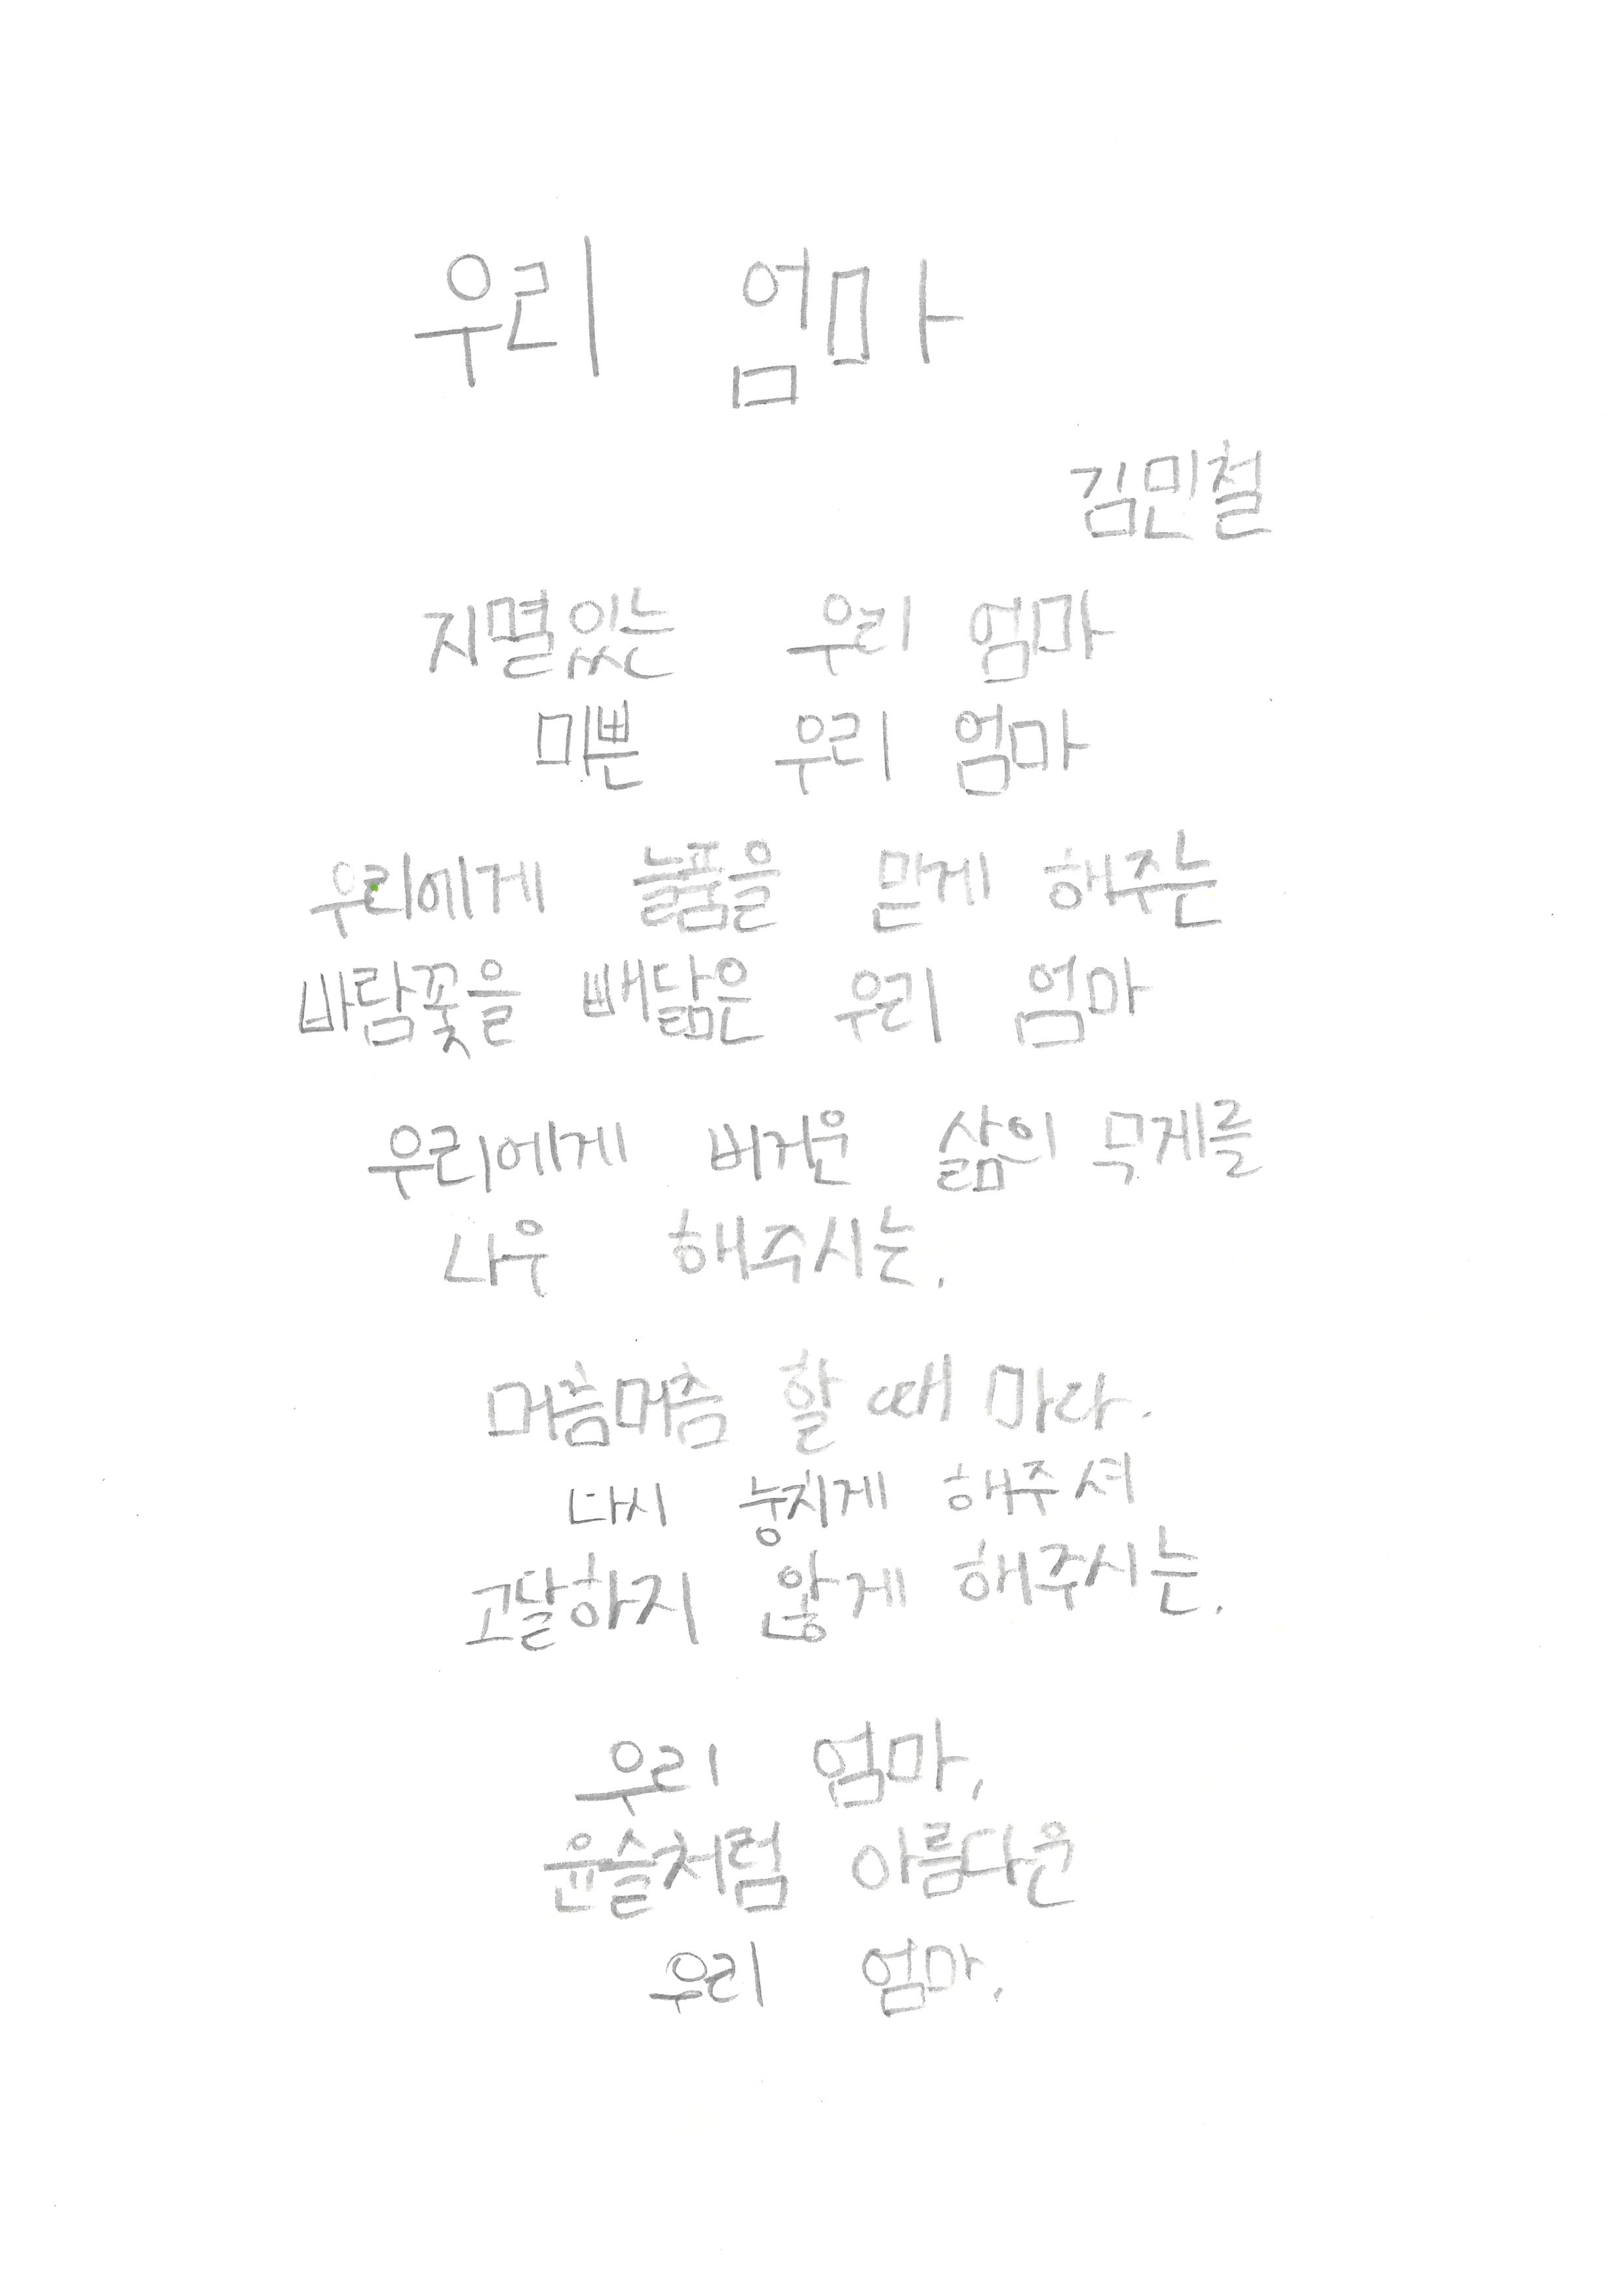 우리 엄마
김민철
지멸있는 우리 엄마
미쁜 우리 엄마
우리에게 늘품을 맏게 해주는
바람꽃을 빼닮은 우리 엄마
우리에게 버거운 삶의 무게를
나우 해주시는.
머츰머츰 할 때 마다.
다시 눙치게 해주셔
고달하지 않게 해주시는.
우리 엄마,
윤슬처럼 아름다운
우리 엄마.